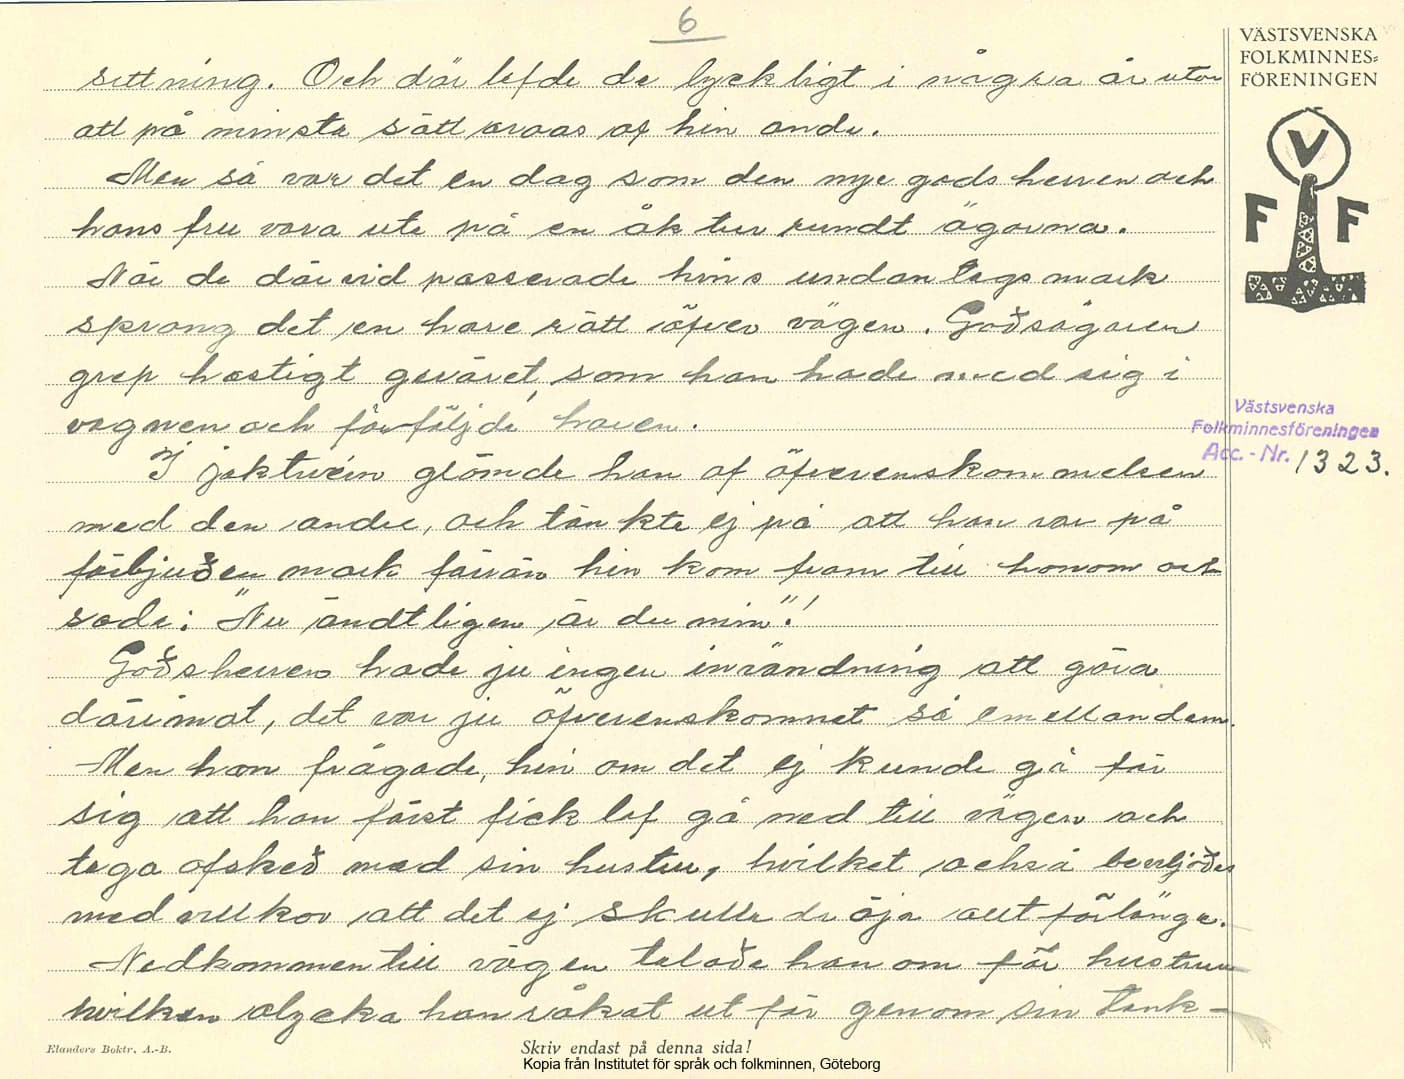 6
VÄSTSVENSKA
FOLKMINNES=
FÖRENINGEN
V
F F
sittning. Och där lefde de lyckligt i några år utan
att på minsta sätt oroas af hin onde.
Men så var det en dag som den nye godsherren och
hans fru vara ute på en åktur rundt ägorna.
När de därvid passerade hins undantagsmark
sprang det en hare rätt öfver vägen. Godsägaren
grep hastigt geväret, som han hade med sig i
vagnen och förföljde haren.
I jaktivern glömde han af öfverenskommelsen
med den andre, och tänkte ej på att han var på
förbjuden mark förrän hin kom fram till honom och
sade: "Nu ändtligen är du min"!
Godsherren hade ju ingen invändning att göra
däremot, det var ju öfverenskommet så emellan dem.
Men han frågade, hin om det ej kunde gå för
sig att han först fick lof gå ned till vägen och
taga afsked med sin hustru, hvilket också beviljades
med villkor att det ej skulle dröja allt för länge.
Nedkommen till vägen talade han om för hustrun
hvilken olycka han råkat ut för genom sin tank-
Västsvenska
Folkminnesföreningen
Acc.-Nr. 1323.
Elanders Boktr. A.-B.
Skriv endast på denna sida!
Kopia från Institutet för språk och folkminnen, Göteborg